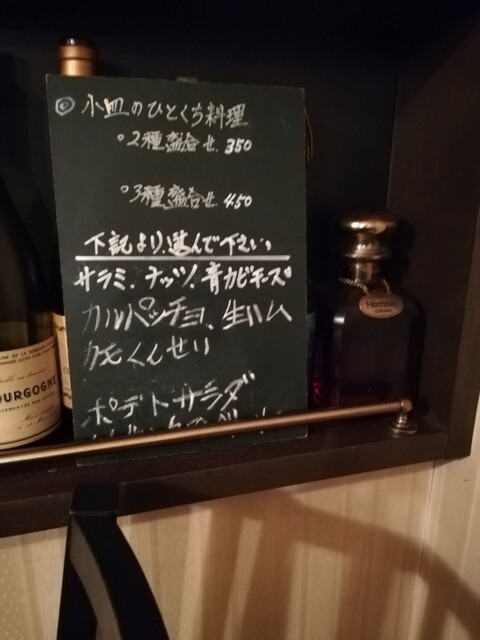 ◎ 小皿のひとくち料理
○2種盛合せ 350
○3種盛合せ 450
下記より、選んで下さい
サラミ、ナッツ、青カビチーズ
カルパッチョ、生ハム
くんせい
ポテトサラダ
OURGOGNE
Hennessy